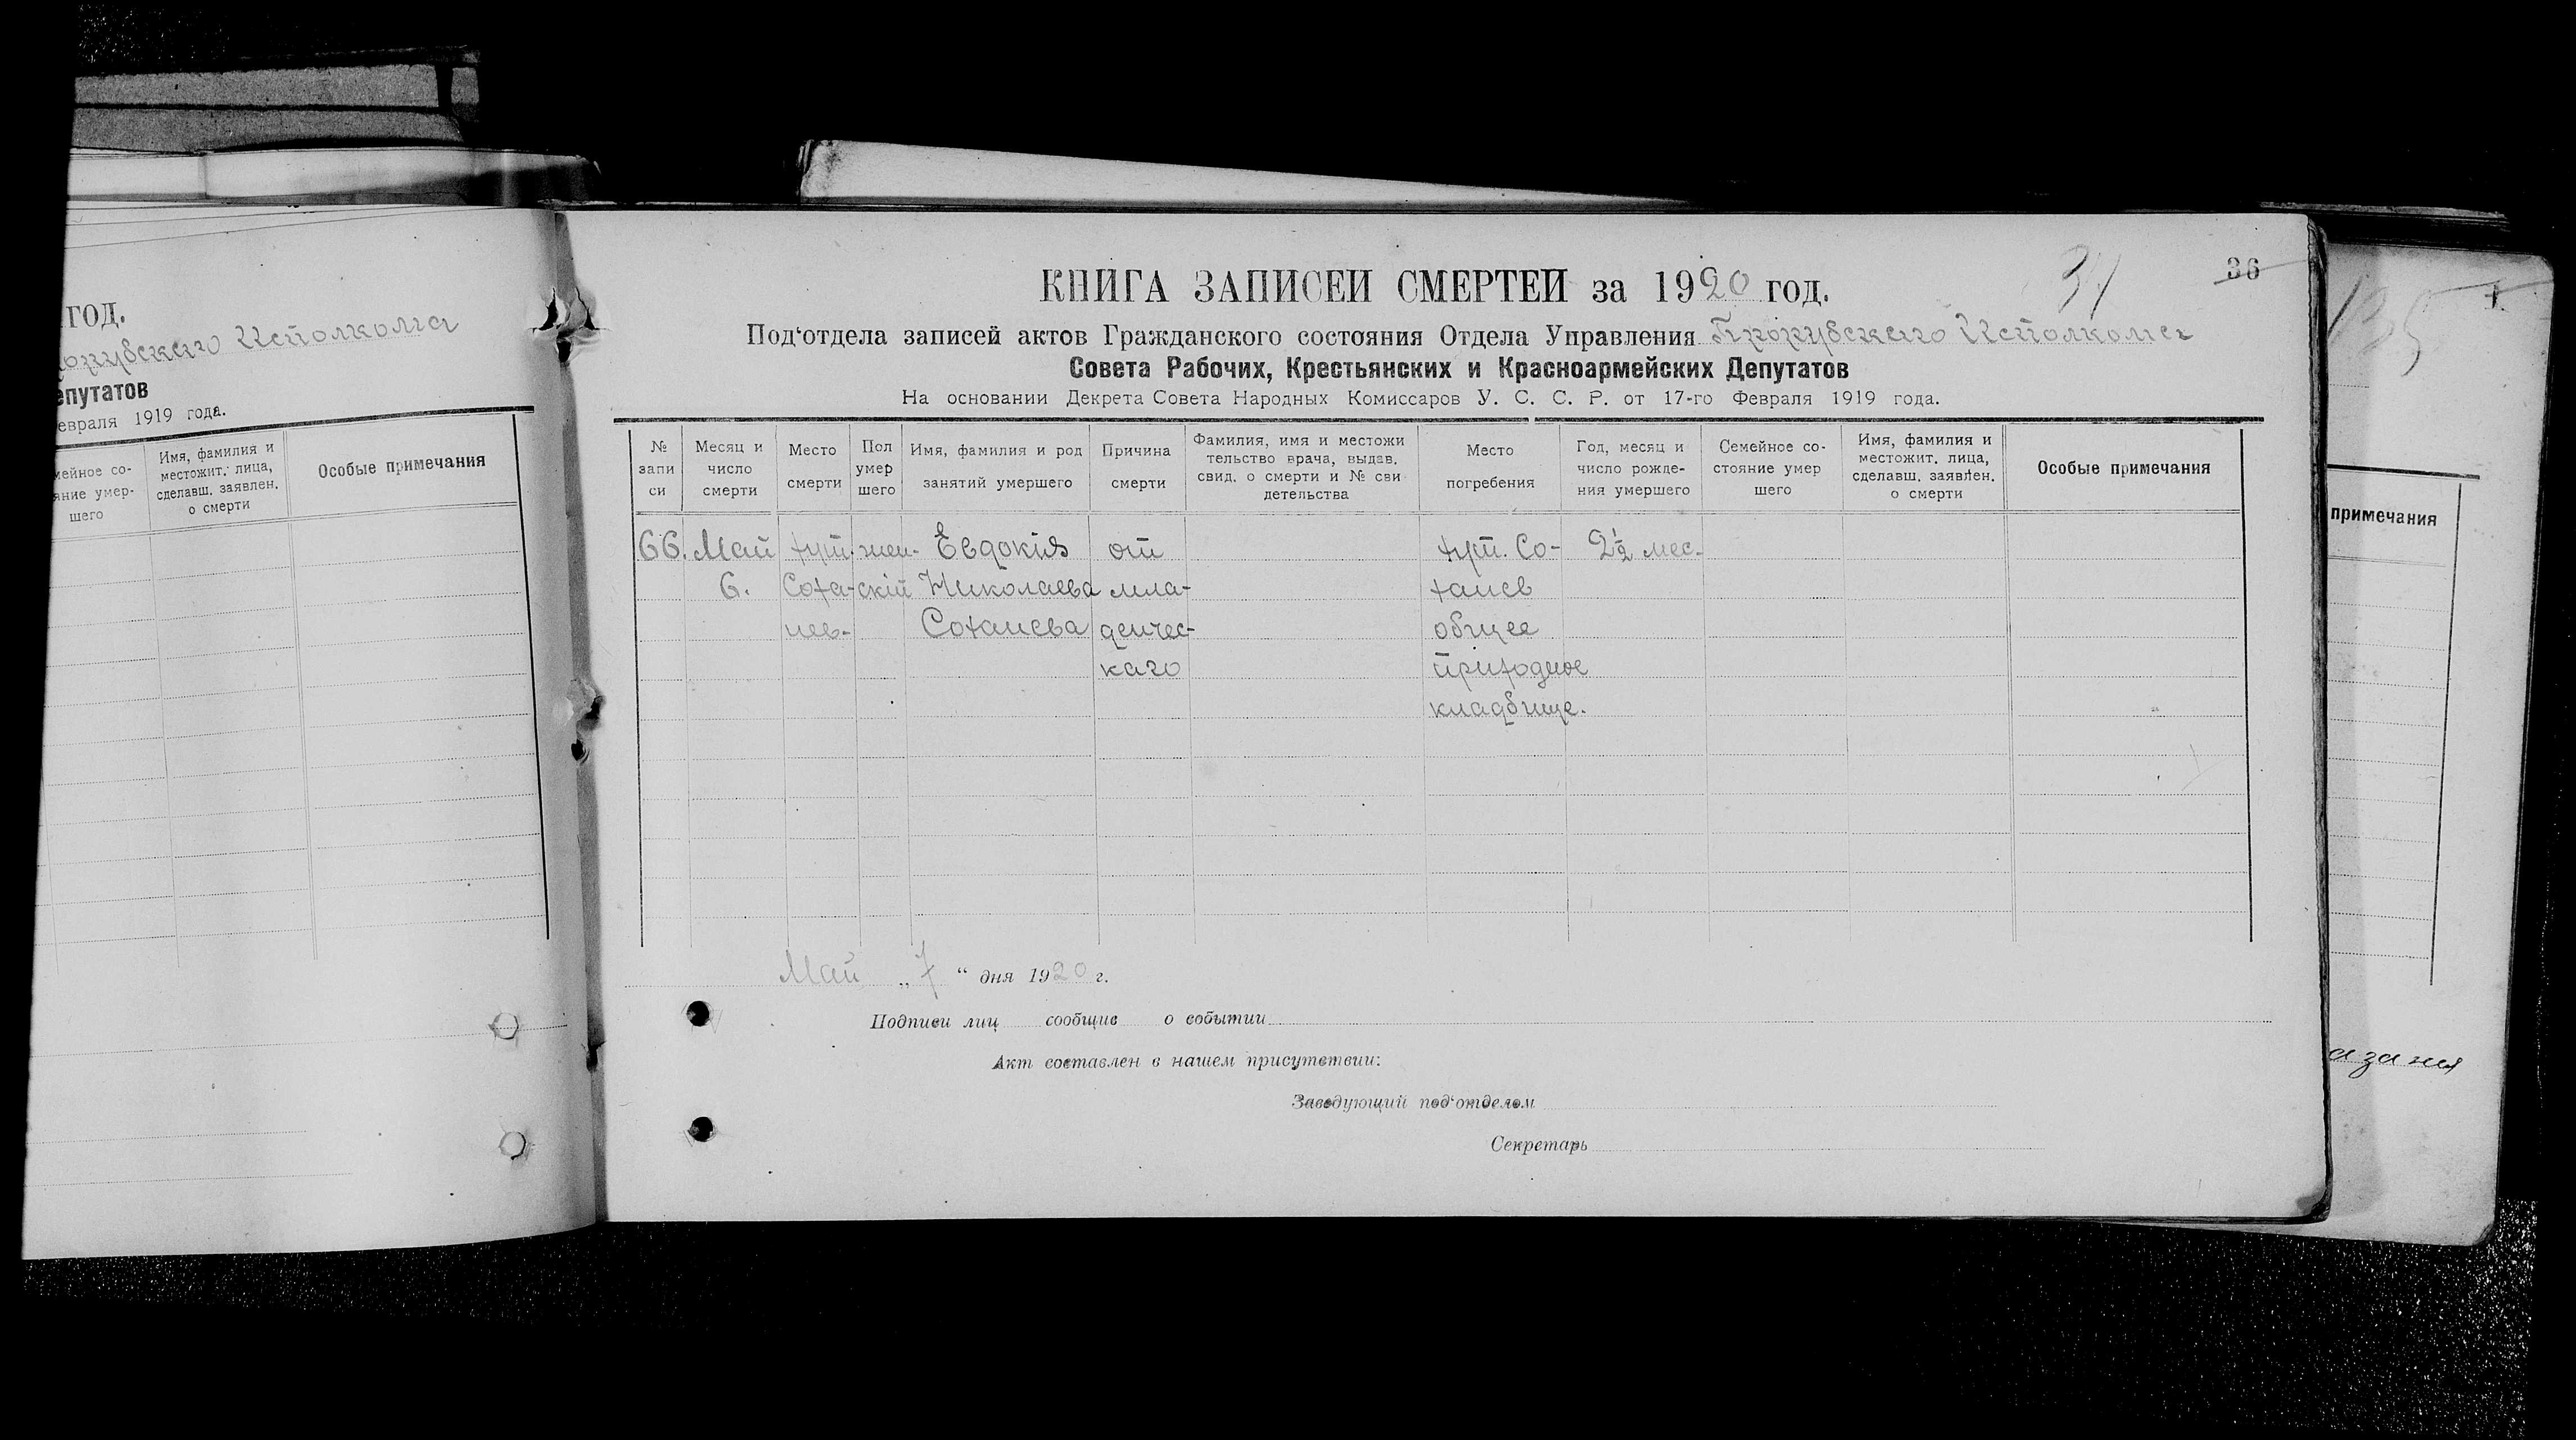 ГОД.
Исполкома
епутатов
евраля 1919 года.
мейное со-
яние умер-
шего
Имя, фамилия и
местожит. лица,
сделавш. заявлен.
о смерти
Особые примечания
КНИГА ЗАПИСЕЙ СМЕРТЕЙ за 1920 год.
34
36
Под'отдела записей актов Гражданского состояния Отдела Управления Исполкома
Совета Рабочих, Крестьянских и Красноармейских Депутатов
На основании Декрета Совета Народных Комиссаров У. С. С. Р. от 17-го Февраля 1919 года.
№
запи
си
Месяц и
число
смерти
Место
смерти
Пол
умер
шего
Имя, фамилия и род
занятий умершего
Причина
смерти
Фамилия, имя и местожи
тельство врача, выдав.
свид. о смерти и № сви
детельства
Место
погребения
Год, месяц и
число рожде-
ния умершего
Семейное со-
стояние умер
шего
Имя, фамилия и
местожит. лица,
сделавш. заявлен.
о смерти
Особые примечания
66.
Май
6.
хут.
Соха-
нев-
жен-
скій
Евдокія
Николаева
Соханева
от
мла-
денчес-
каго
хут. Со-
ханев
общее
приходное
кладбище.
2½ мес.
Май „7“ дня 1920 г.
Подписи лиц сообщив о событии
Акт составлен в нашем присутствии:
Заведующий под'отделом
Секретарь
135
1.
примечания
азаня